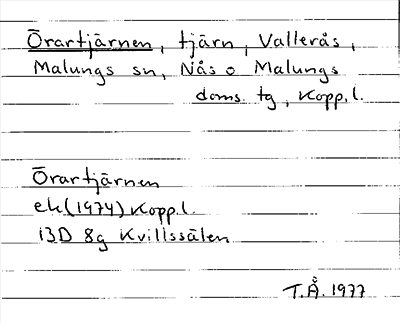 Örartjärnen, tjärn, Vallerås,
Malungs sn, Nås o Malungs
doms. tg, Kopp. l.
Örartjärnen
ek (1974) Kopp. l.
13D 8g Kvillssälen
T.Å. 1977